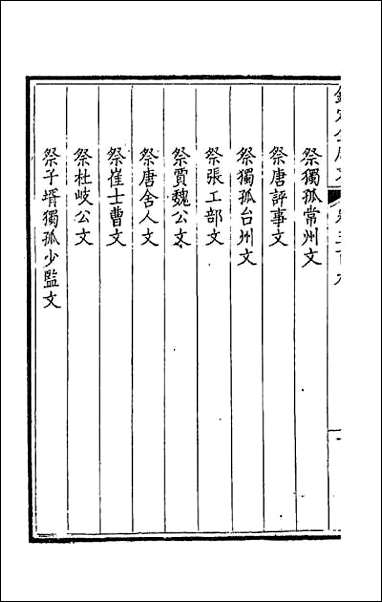 祭獨孤常州文
祭唐評事文
祭獨孤台州文
祭張工部文
祭賈魏公文
祭唐舍人文
祭崔士曹文
祭杜岐公文
祭子壻獨孤少監文